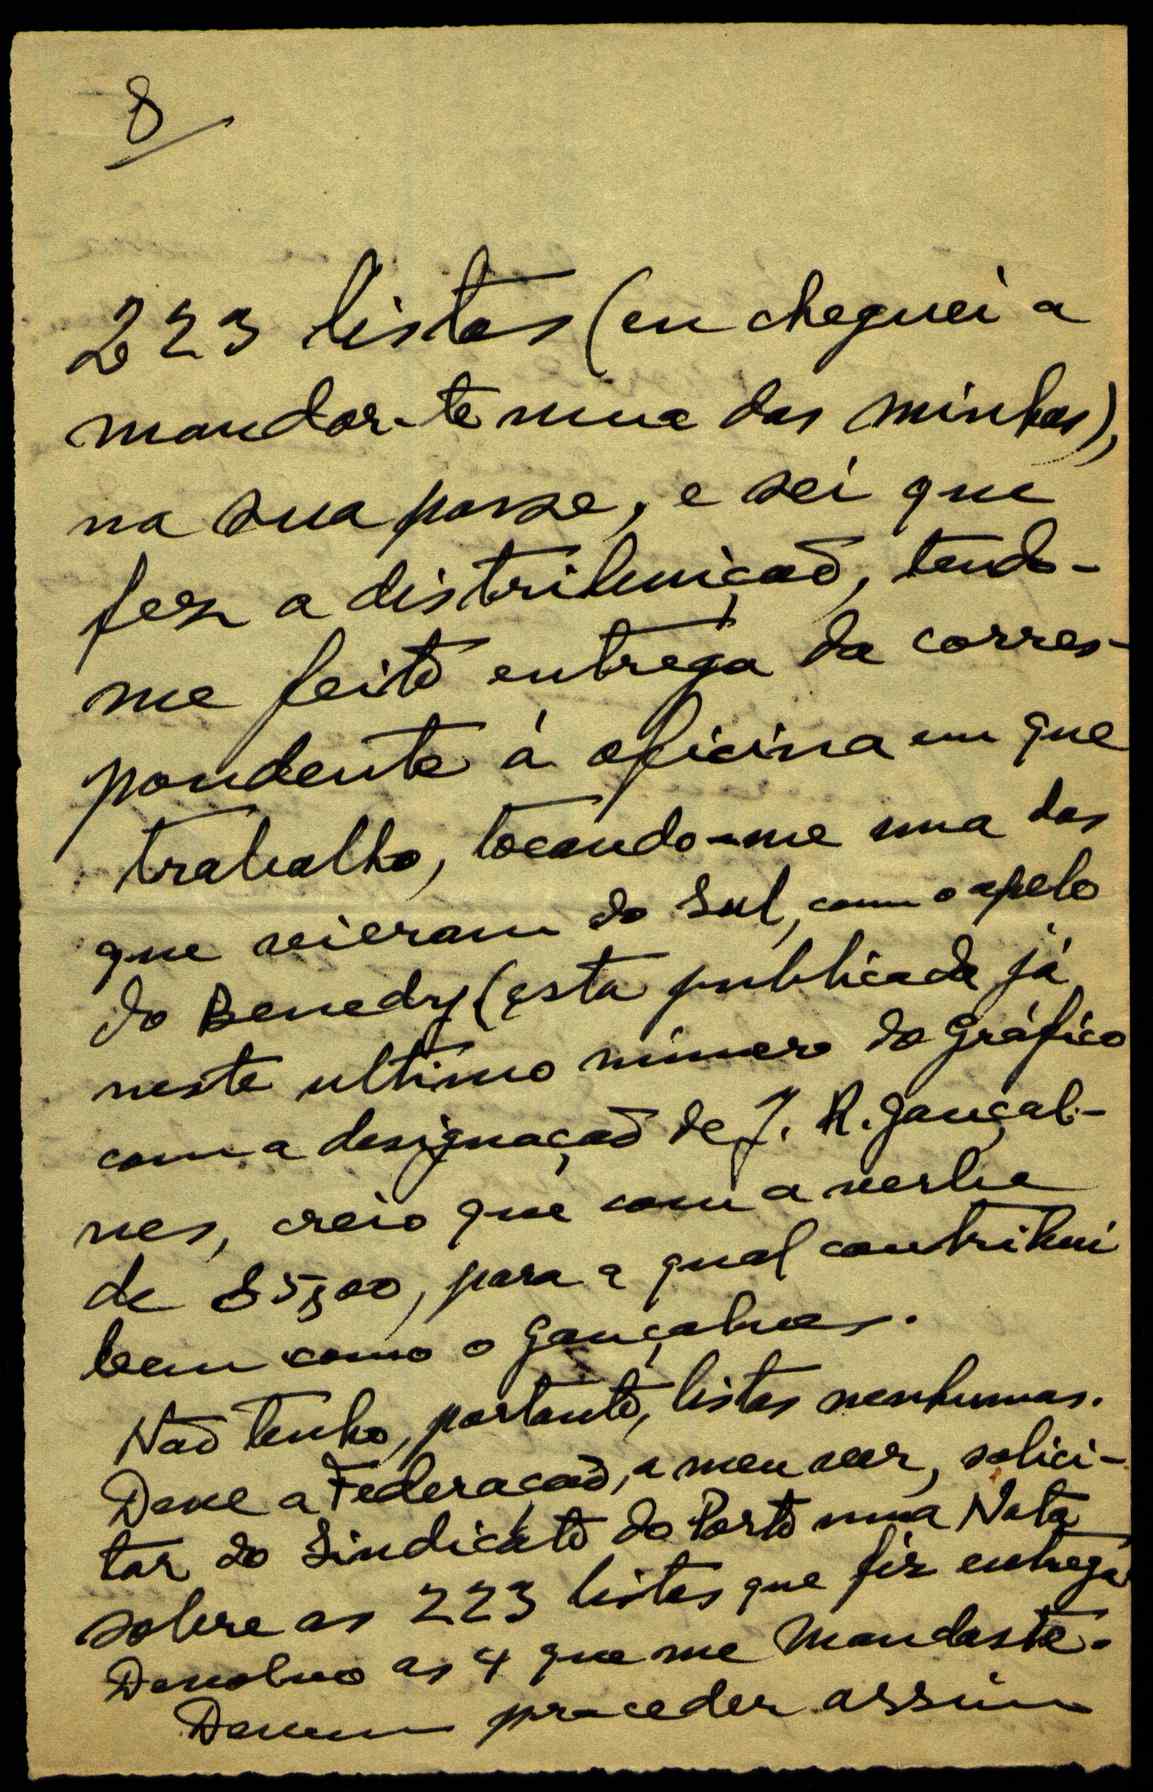 8
223 listas (eu cheguei a
mandar-te uma das minhas),
na sua posse, e sei que
fez a distribuição, tendo-
me feito entrega da corres-
pondente á oficina em que
trabalho, tocando-me uma das
que vieram do Sul, com o apelo
do Benedy (esta publicada já
neste ultimo número do Gráfico
com a designação de J. R. Gonçal-
ves, creio que com a verba
de 85$00, para a qual contribui
bem como o Gonçalves.
Não tenho, portanto, listas nenhumas.
Deve a Federação, a meu ver, solici-
tar do Sindicato do Porto uma Nota
sobre as 223 listas que fiz entrega
Devolvo as 4 que me mandaste.
Devem proceder assim